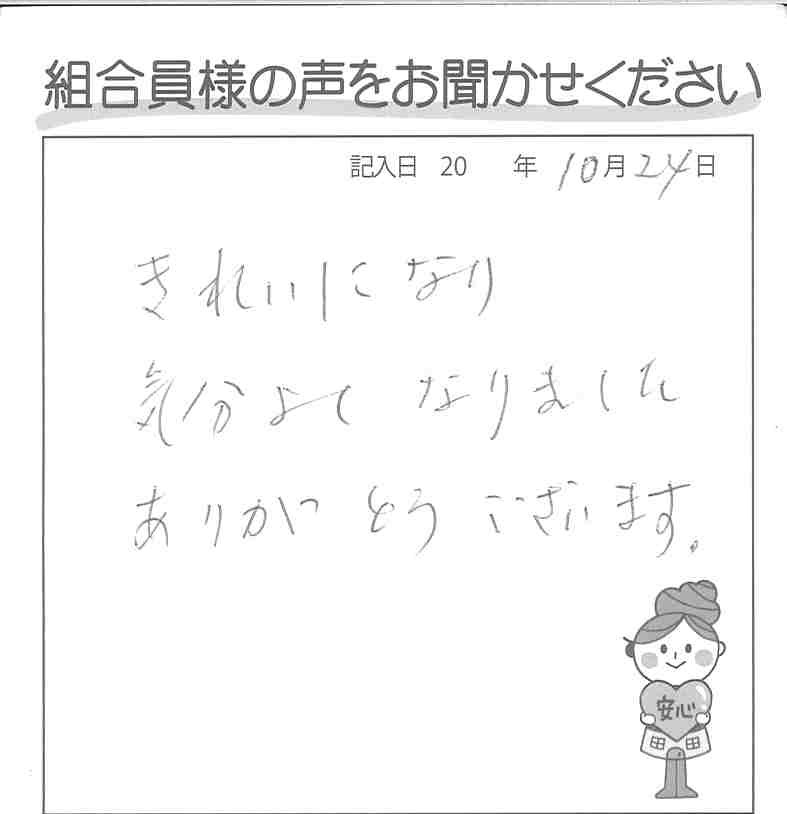 組合員様の声をお聞かせください
記入日 20 年 10月24日
きれいになり
気分よく なりました
ありがとうございます。
安心